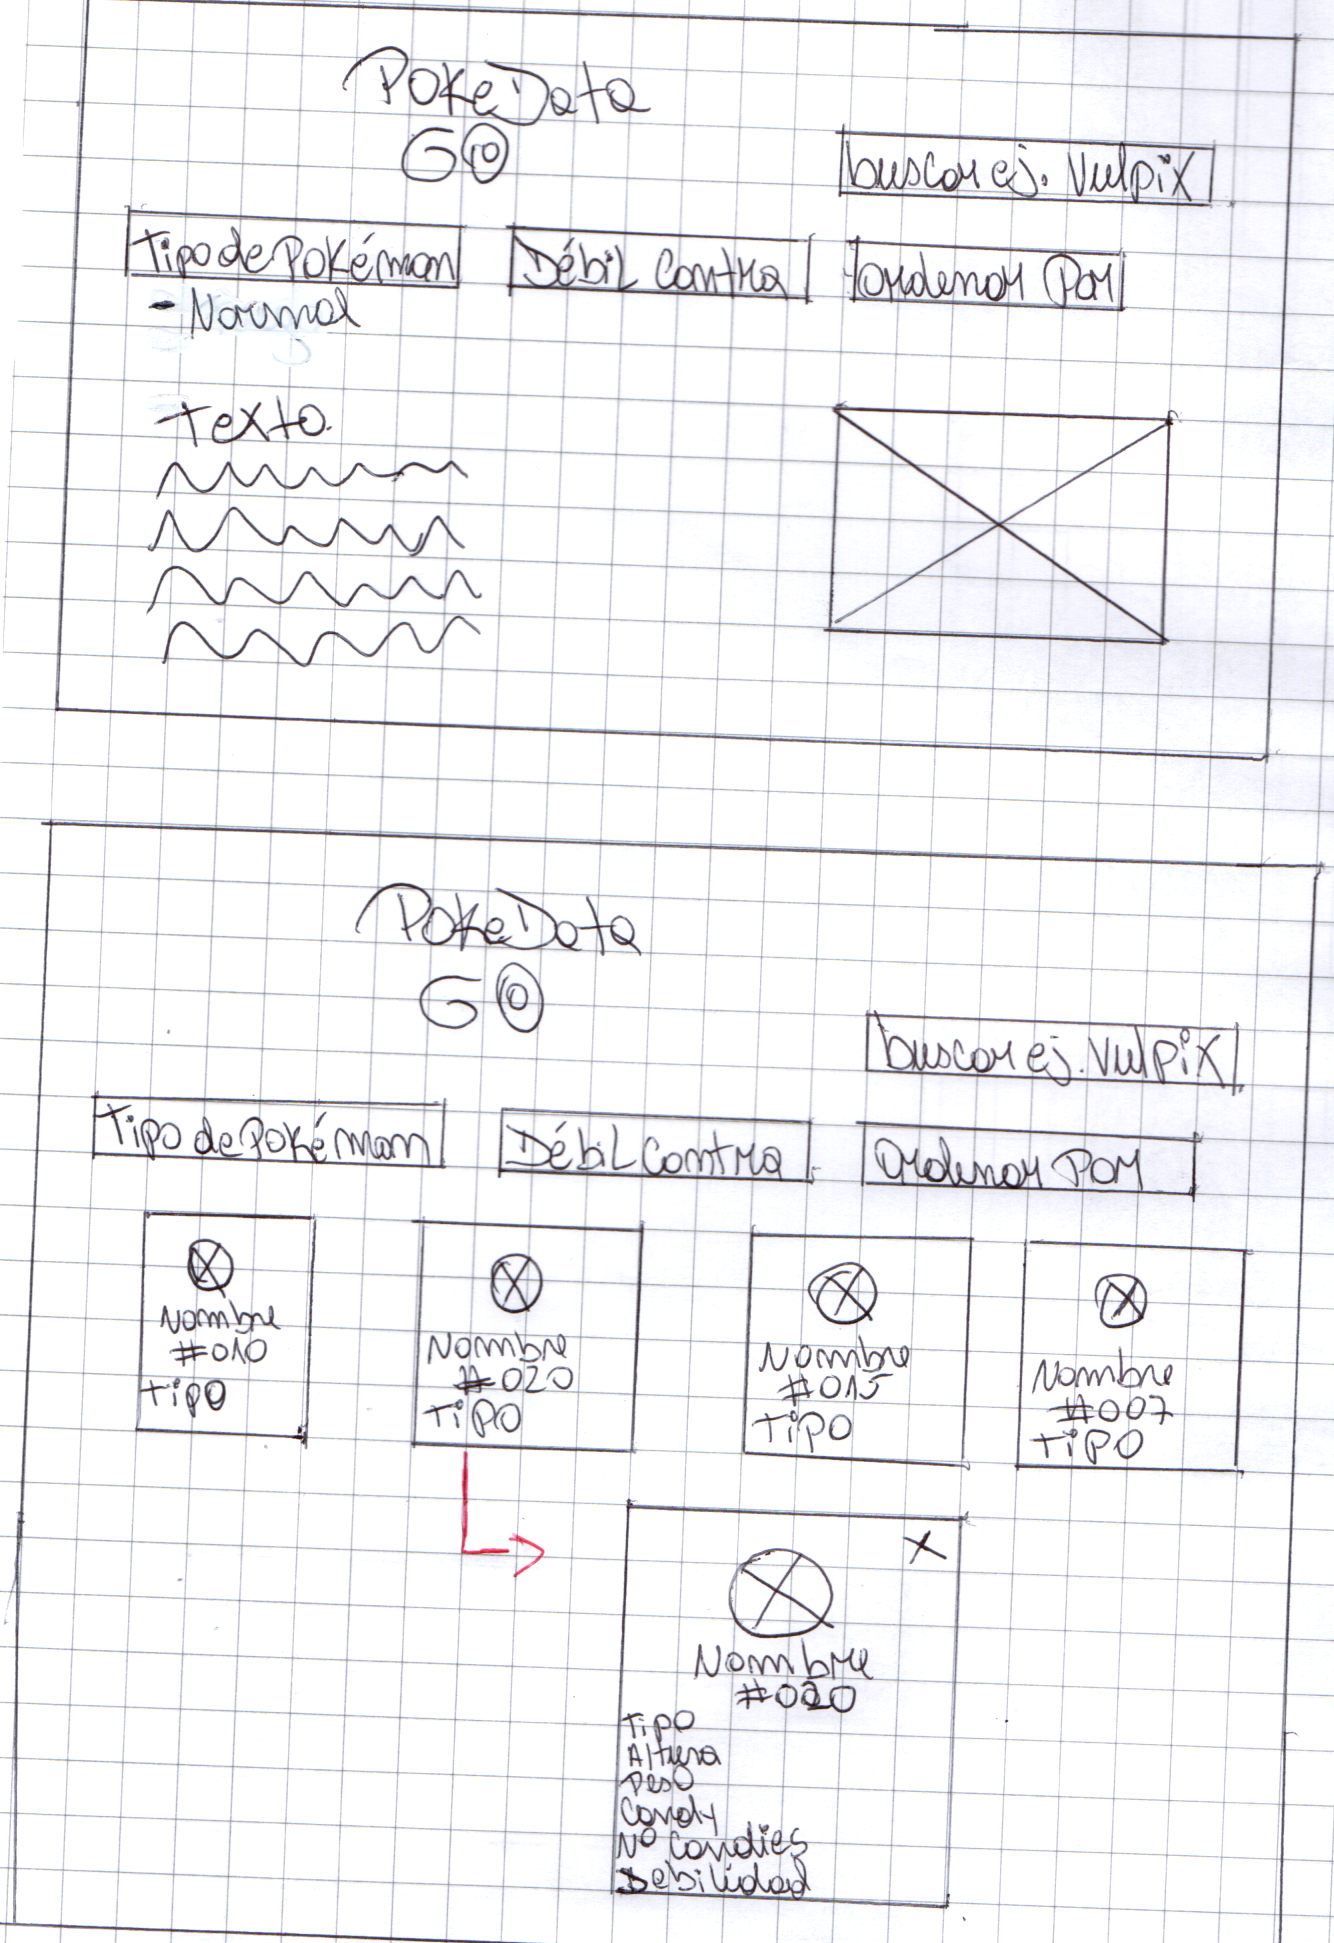 PokeData
GO
buscar ej. Vulpix
Tipo de Pokémon
Débil Contra
Ordenar Por
- Normal
Texto.
PokeData
GO
buscar ej. Vulpix
Tipo de Pokémon
Débil Contra
Ordenar Por
Nombre
#010
Tipo
Nombre
#020
Tipo
Nombre
#015
Tipo
Nombre
#007
Tipo
X
Nombre
#020
Tipo
Altura
Peso
Candy
Nº Candies
Debilidad